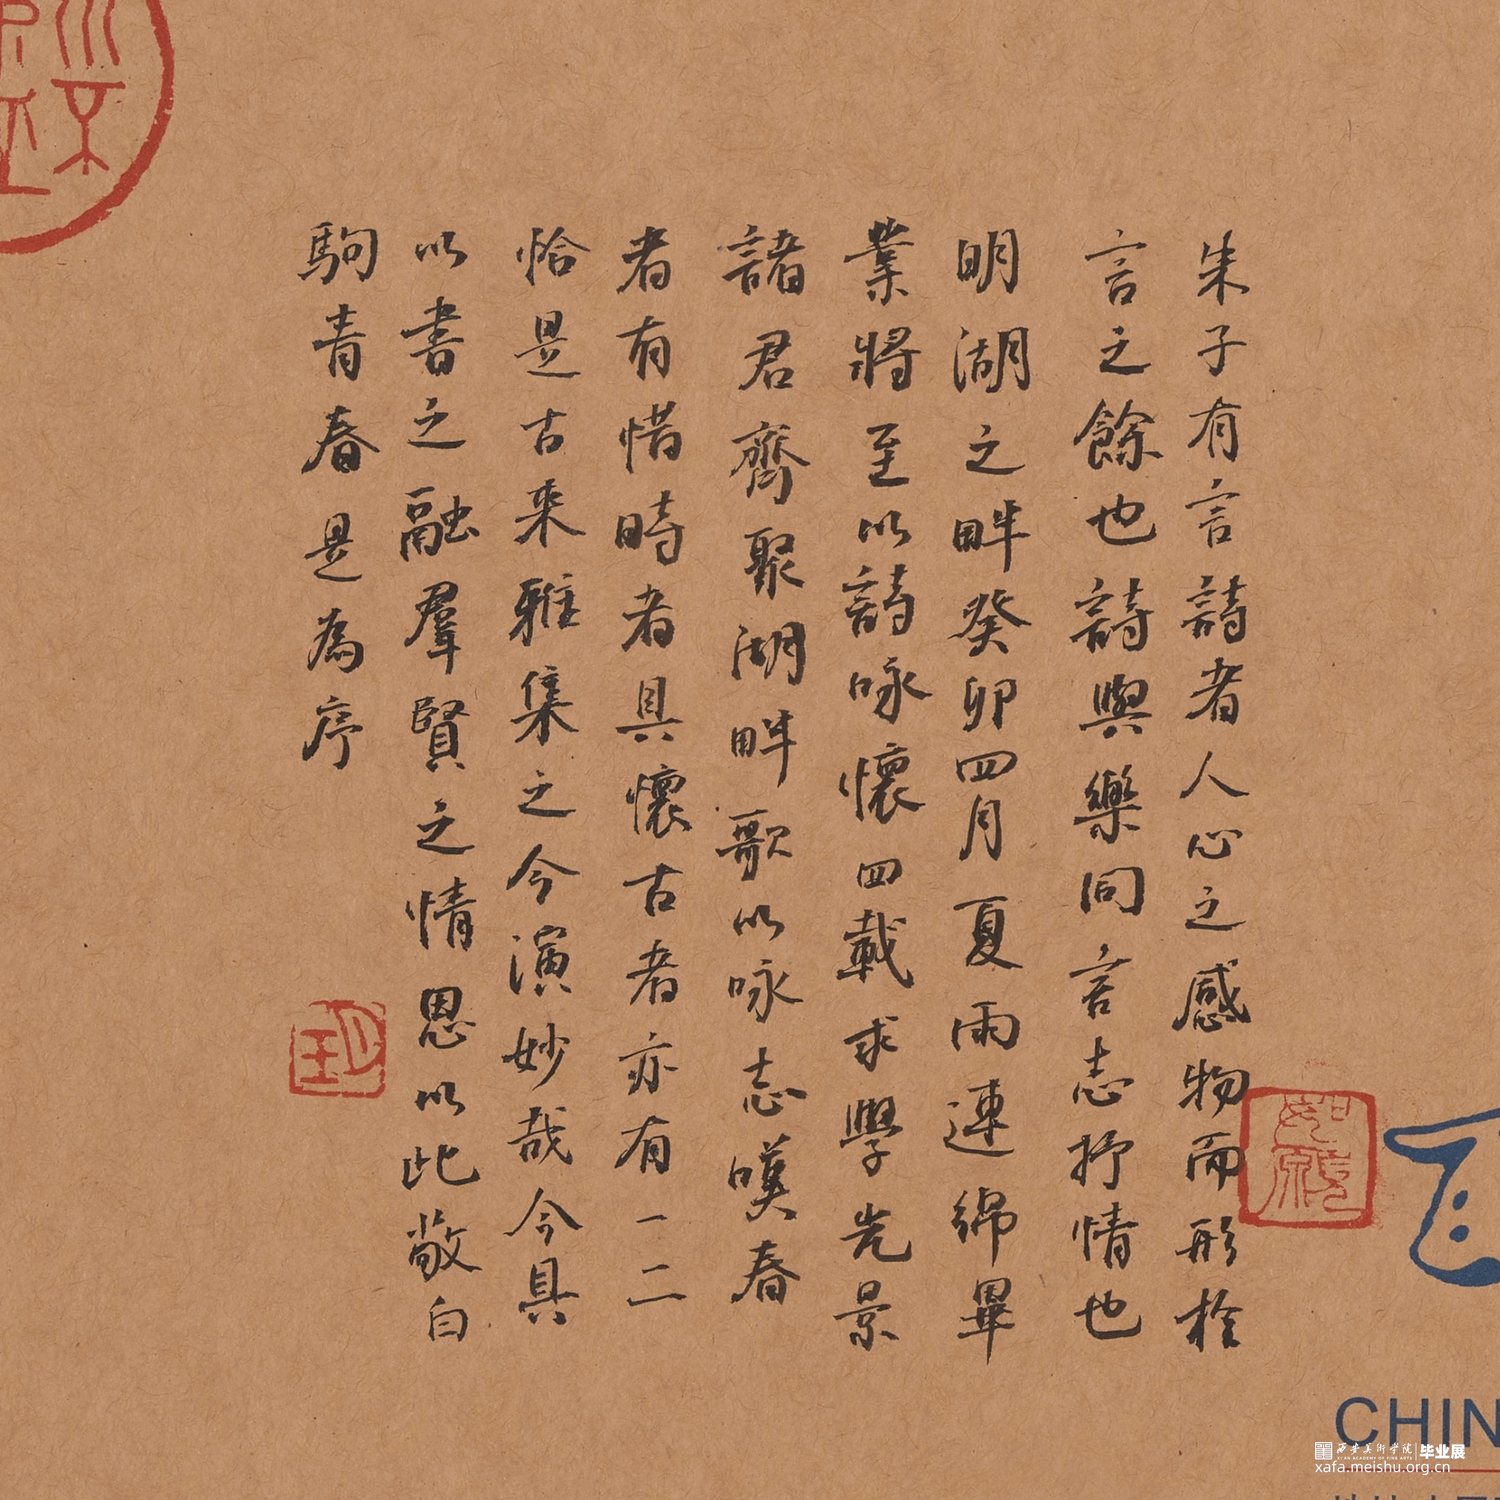 朱子有言詩者人心之感物而形於
言之餘也詩與樂同言志抒情也
明湖之畔癸卯四月夏雨連綿畢
業將至以詩咏懷四載求學光景
諸君齊聚湖畔歌以咏志嘆春
者有惜時者具懷古者亦有一二
恰是古来雅集之今演妙哉今具
以書之融羣賢之情思以此敬白
駒青春是為序
如願
CHIN
西安美術學院
XI'AN ACADEMY OF FINE ARTS
毕业展
xafa.meishu.org.cn